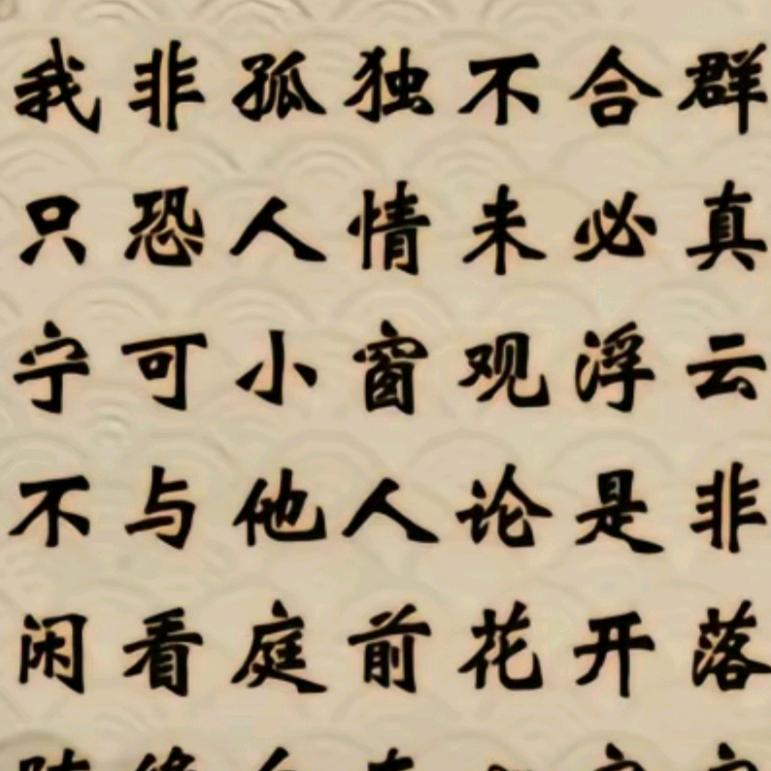 我非孤独不合群
只恐人情未必真
宁可小窗观浮云
不与他人论是非
闲看庭前花开落